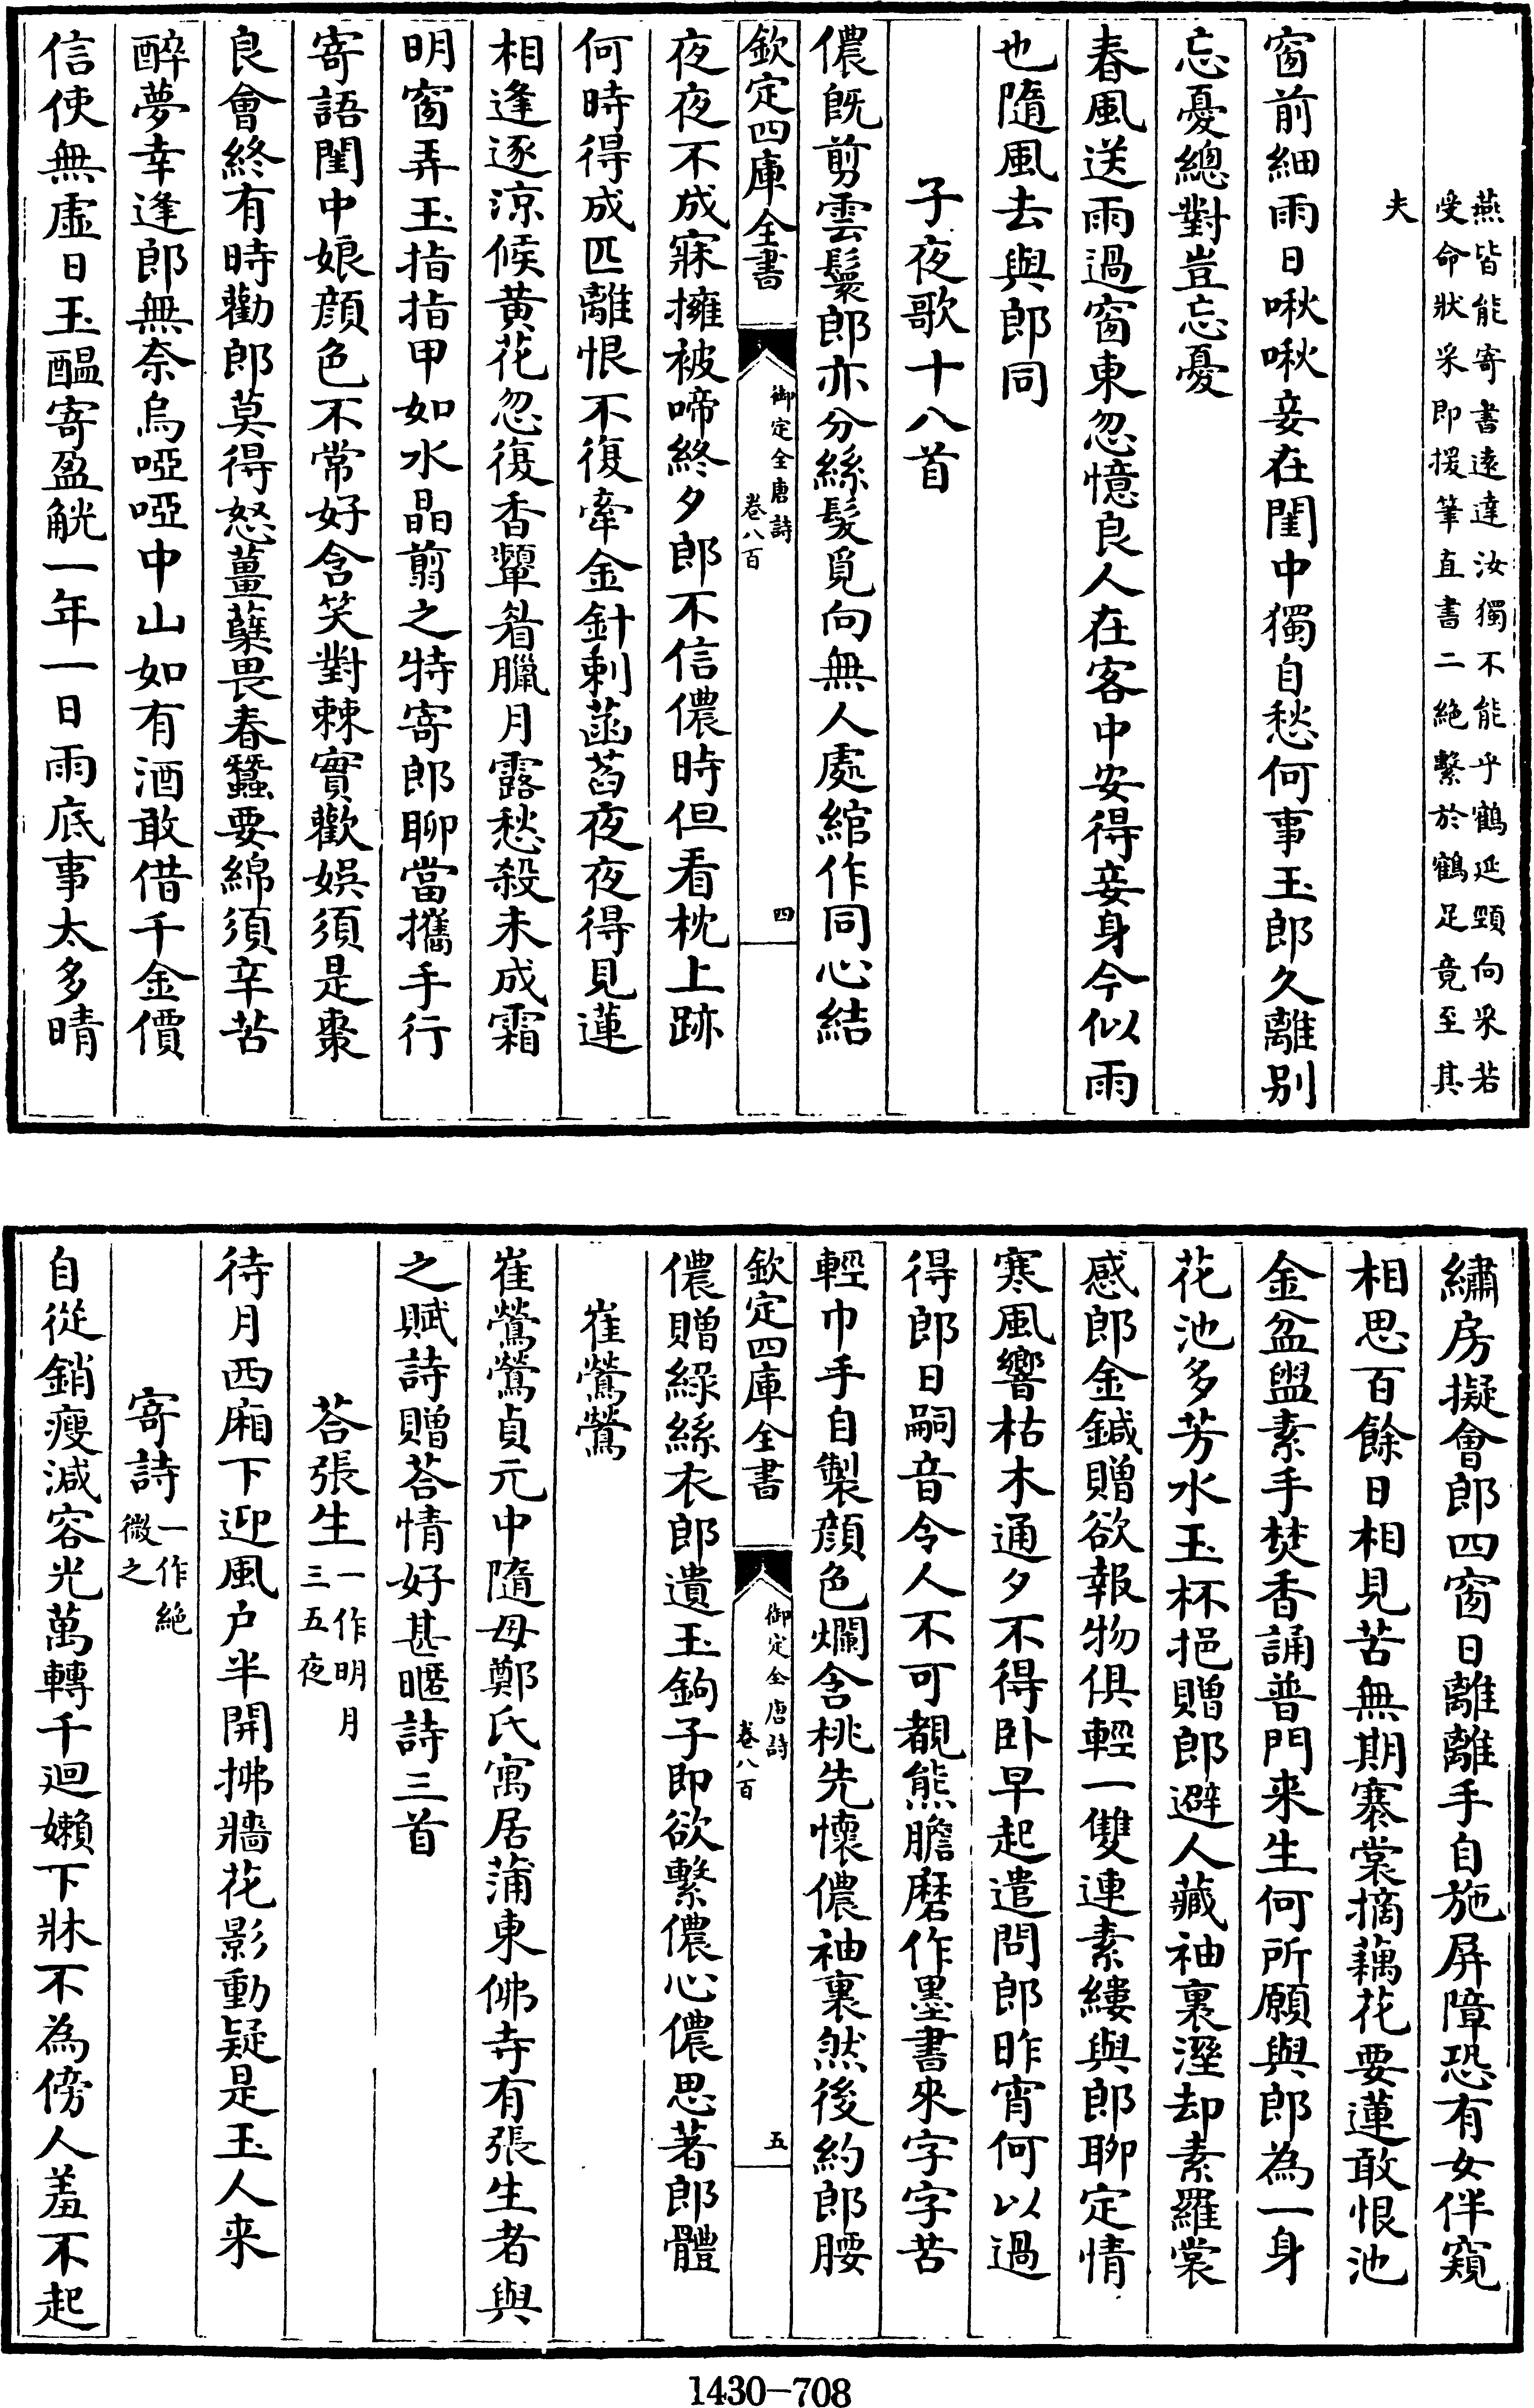 燕皆能寄書遠達汝獨不能乎鶴延頸向采若
受命狀采即援筆直書二絶繫於鶴足竟至其
夫
窗前細雨日啾啾妾在閨中獨自愁何事玉郎久離别
忘憂總對豈忘憂
春風送雨過窗東忽憶良人在客中安得妾身今似雨
也隨風去與郎同
子夜歌十八首
儂既剪雲鬟郎亦分絲髮覓向無人處綰作同心結
欽定四庫全書
御定全唐詩
卷八百
四
夜夜不成寐擁被啼終夕郎不信儂時但看枕上跡
何時得成匹離恨不復牽金針刺菡萏夜夜得見蓮
相逢逐涼候黄花忽復香顰眉臘月露愁殺未成霜
明窗弄玉指指甲如水晶翦之特寄郎聊當攜手行
寄語閨中娘顔色不常好含笑對棘實歡娛須是棗
良會終有時勸郎莫得怒薑蘗畏春蠶要綿須辛苦
醉夢幸逢郎無奈烏啞啞中山如有酒敢借千金價
信使無虛日玉醖寄盈觥一年一日雨底事太多晴
繡房擬會郎四窗日離離手自施屏障恐有女伴窺
相思百餘日相見苦無期褰裳摘藕花要蓮敢恨池
金盆盥素手焚香誦普門来生何所願與郎為一身
花池多芳水玉杯挹贈郎避人藏袖裏溼却素羅裳
感郎金鍼贈欲報物俱輕一雙連素縷與郎聊定情
寒風響枯木通夕不得卧早起遣問郎昨宵何以過
得郎日嗣音令人不可覩熊膽磨作墨書來字字苦
輕巾手自製顔色爛含桃先懷儂袖裏然後約郎腰
欽定四庫全書
御定全唐詩
卷八百
五
儂贈緑絲衣郎遺玉鉤子即欲繫儂心儂思著郎體
崔鶯鶯
崔鶯鶯貞元中隨母鄭氏寓居蒲東佛寺有張生者與
之賦詩贈荅情好甚暱詩三首
荅張生一作明月
三五夜
待月西廂下迎風户半開拂牆花影動疑是玉人来
寄詩一作絶
微之
自從銷瘦減容光萬轉千迴嬾下牀不為傍人羞不起
1430-708